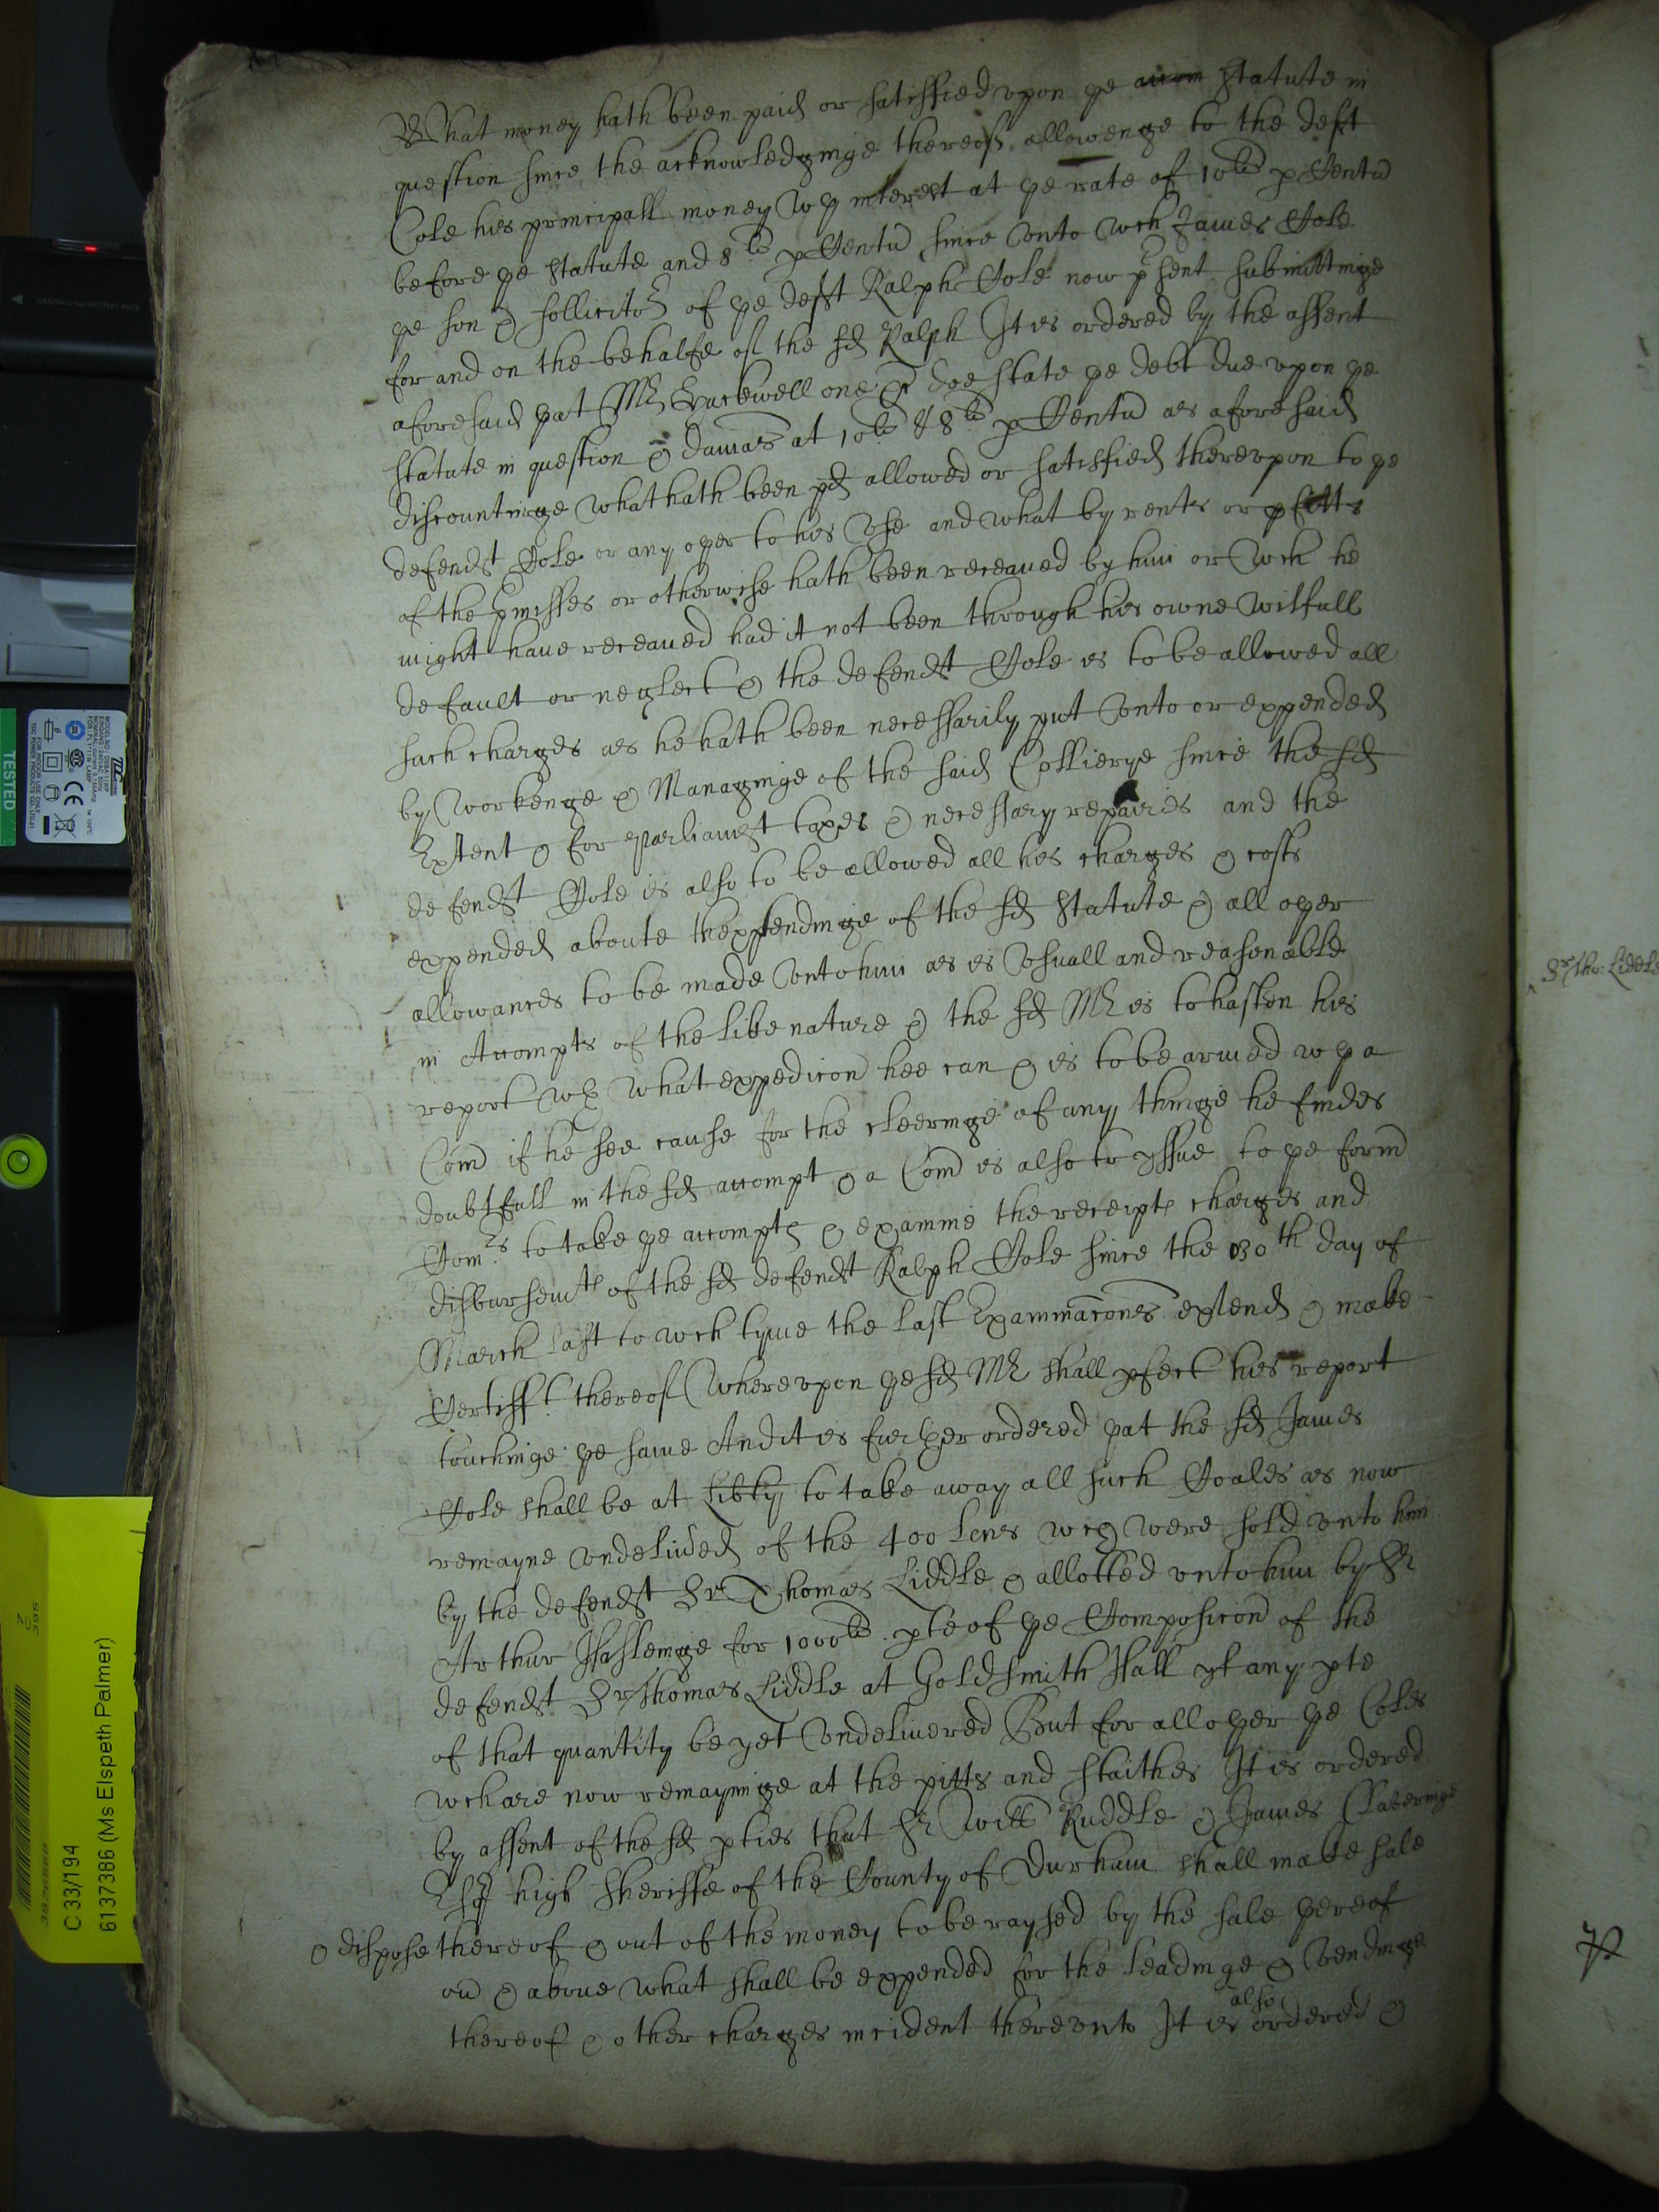 What money hath been paid or satisfied vpon ye statute in
question since the acknowledginge thereof, allowenge to the deft
Cole his principall money wth interest at ye rate of 10li p Centu
before ye statute and 8li p Centu since Vnto wch James Cole
ye son & sollicitor of ye deft Ralph Cole now psent submittinge
for and on the behalfe of the sd Ralph It is ordered by the assent
aforesaid yat Mr doe state ye debt due vpon ye
statute in question & damas at 10li & 8li p Centu as aforesaid
discountinge what hath been pd allowed or satisfied therevpon to ye
defendt Cole or any oyer to his Vse and what by rents or pfitts
of the pmisses or otherwise hath been receaued by him or wch he
might haue receaued had it not been through his owne wilfull
default or neglect & the defendt Cole is to be allowed all
such charges as he hath been necessarily put Vnto or expended
by Workenge & Managinge of the said Collierye since the sd
Extent & for Parliamt taxes & necessary repaires and the
defendt Cole is also to be allowed all his charges & costs
expended aboute thextendinge of the sd statute & all oyer
allowances to be made Vnto him as is Vsuall and reasonable
in Accompts of the like nature & the sd Mr is to hasten his
report wth what expedicon hee can & is to be armed wth a
Com if he see cause for the cleeringe of any thinge he findes
doubtfull in the sd accompt & a Com is also to yssue to ye form
Comrs to take ye accompts & examine the receipts charges and
disbursemts of the sd defendt Ralph Cole since the 30th day of
March last to wch tyme the last Examinacones extend & make
Certifft thereof Wherevpon ye sd Mr shall pfect his report
touchinge ye same And it is further ordered yat the sd James
Cole shall be at Libty to take away all such Coales as now
remayne vndeliued of the 400 tenns wch were sold vnto him
by the defendt Sr Thomas Liddle & allotted vnto him by Sr
Arthur Haslerige for 1000li pte of ye Composicon of the
defendt Sr Thomas Liddle at Goldsmith Hall yf any pte
of that quantity be yet Vndeliuered But for all oyer ye Coles
wch are now remayninge at the pitts and staithes It is ordered
by assent of the sd pties that Sr Will Ruddle & James Claveringe
Esq high Sheriffe of the County of Durham shall make sale
& dispose thereof & out of the money to be raysed by the sale yereof
ou & aboue what shall be expended for the leadinge & Vendinge
also
thereof & other charges incident therevnto It is ordered &
Sr Tho: Liddle
TESTED
C 33/194
6137386 (Ms Elspeth Palmer)